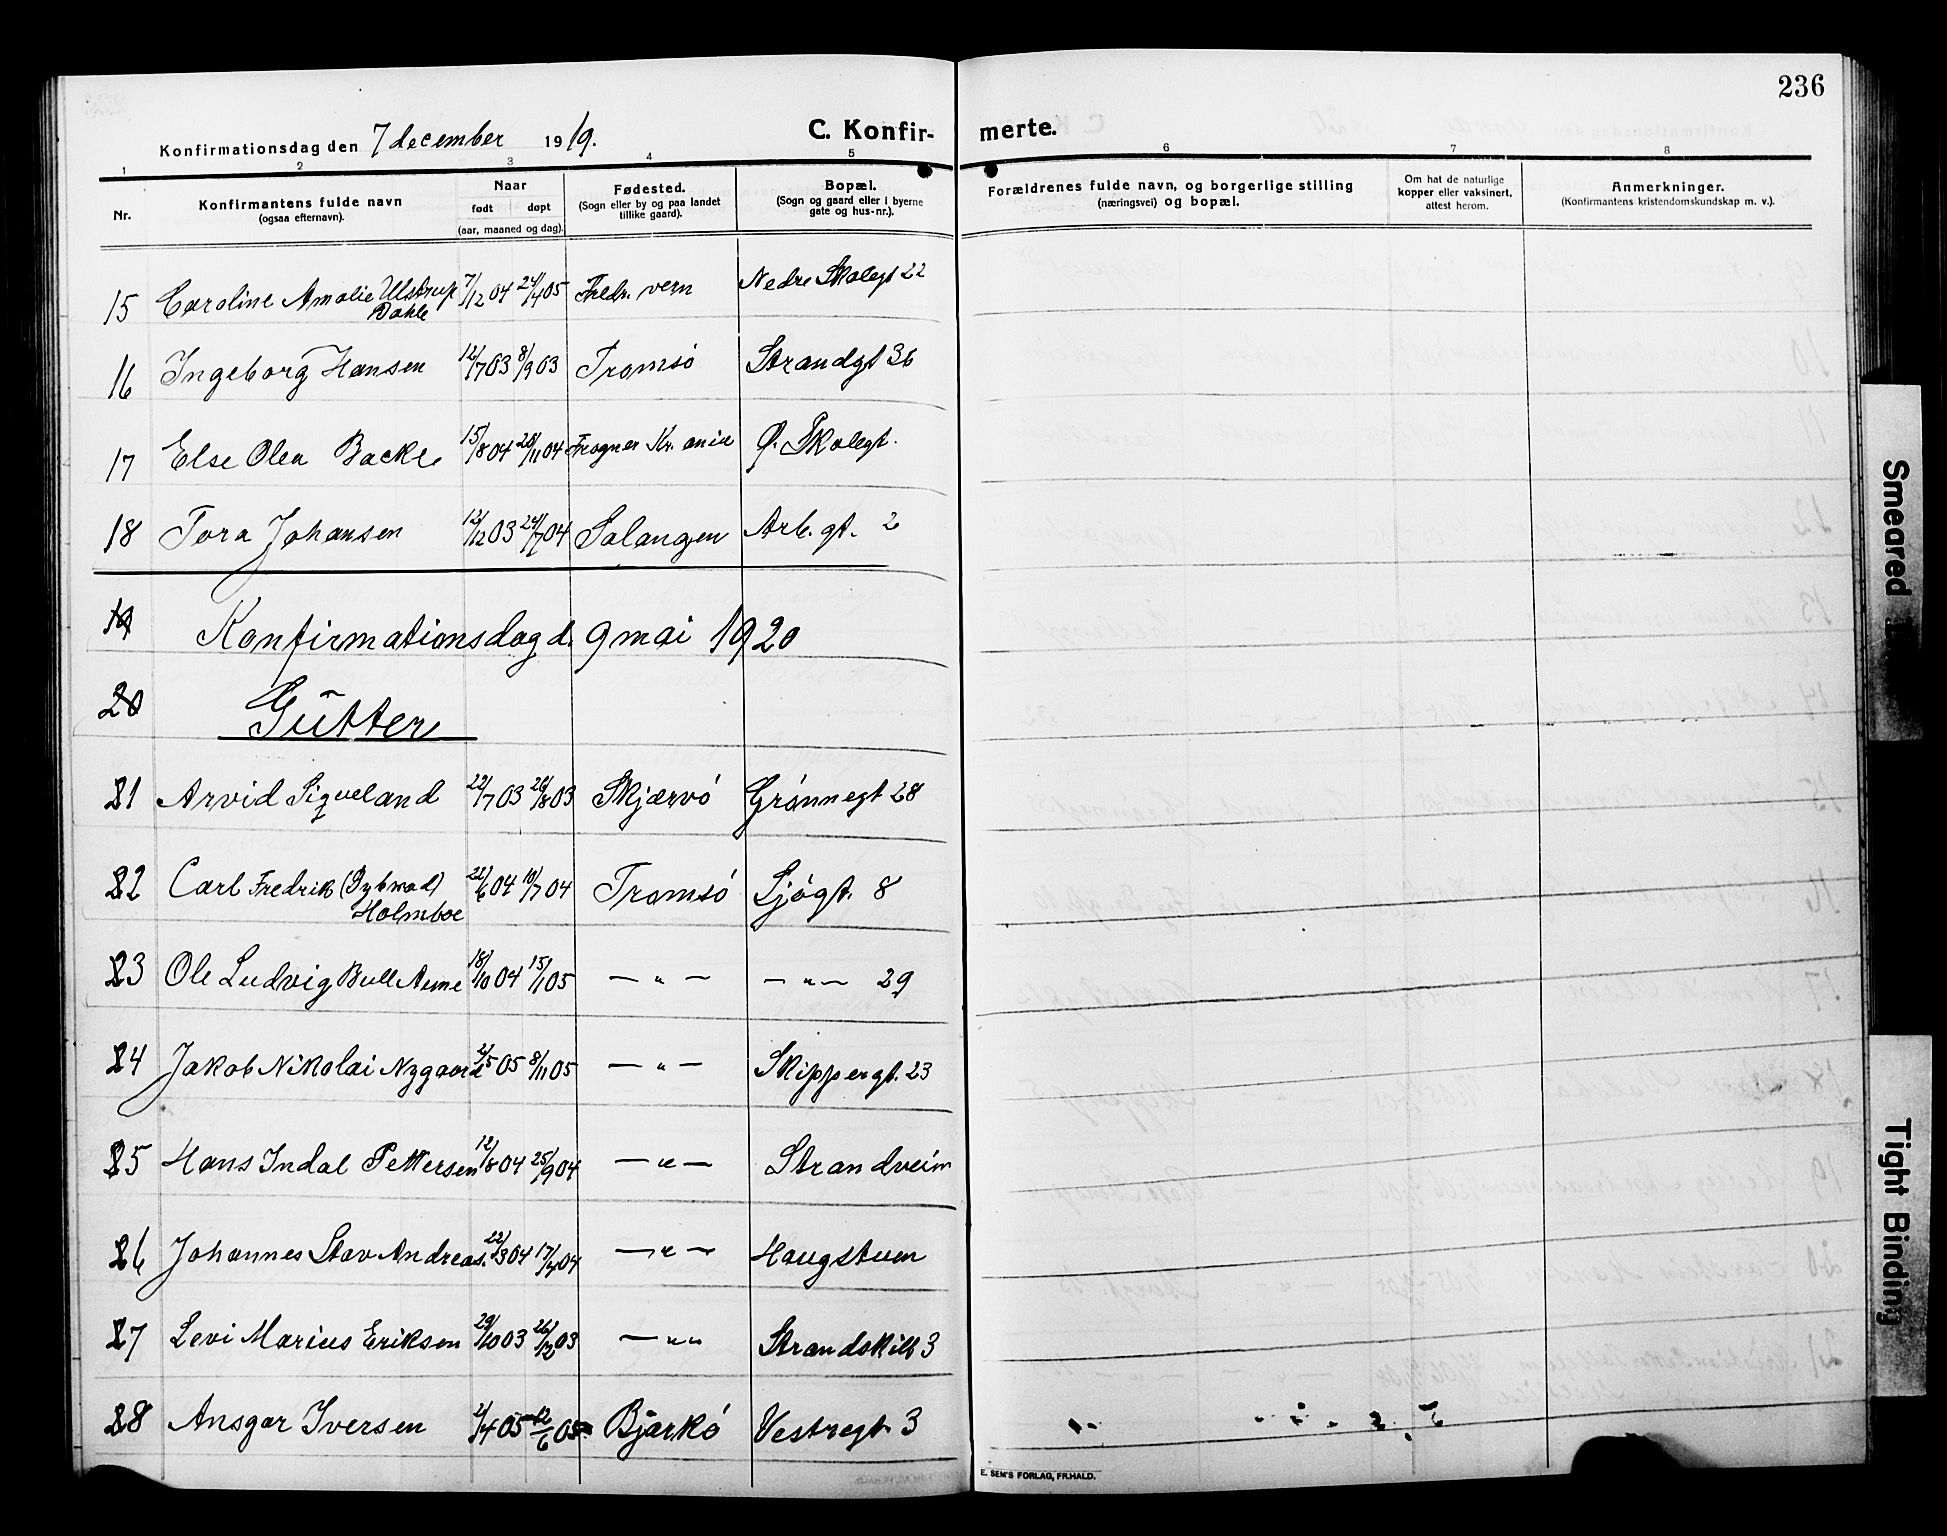 236
Konfirmationsdag den 7 december 1919.
C. Konfir- merte.
1 2 3 4 5 6 7 8
Nr.
Konfirmantens fulde navn
(ogsaa efternavn).
Naar
født døpt
(aar, maaned og dag).
Fødested.
(Sogn eller by og paa landet
tillike gaard).
Bopæl.
(Sogn og gaard eller i byerne
gate og hus-nr.).
Forældrenes fulde navn, og borgerlige stilling
(næringsvei) og bopæl.
Om hat de naturlige
kopper eller vaksinert,
attest herom.
Anmerkninger.
(Konfirmantens kristendomskundskap m. v.).
15 Caroline Amalie Ulstrup 7/12 04 24/4 05 Fredr. vern Nedre Skolegt 22
Dahle
16 Ingeborg Hansen 12/7 03 8/9 03 Tromsö Strandgt 36
17 Else Olea Backe 15/8 04 20/11 04 Frogner Kr. ania Ø. Skolegt.
18 Tora Johansen 12/12 03 24/7 04 Salangen Arb. gt. 2
19 Konfirmationsdag d. 9 mai 1920
20 Gutter
21 Arvid Siqveland 22/7 03 20/8 03 Skjærvö Grönnegt 28
22 Carl Fredrik (Dybwad) 22/6 04 10/7 04 Tromsö Sjögt. 8
Holmboe
23 Ole Ludvig Bull Aune 18/10 04 15/1 05 — " — — " — 29
24 Jakob Nikolai Nygaard 2/5 05 8/11 05 — " — Skippergt. 23
25 Hans Indal Pettersen 12/8 04 25/9 04 — " — Strandveien
26 Johannes Stav Andreas. 22/3 04 17/4 04 — " — Haugstuen
27 Levi Marius Eriksen 29/10 03 26/12 03 — " " Strandskill 3
28 Ansgar Iversen 2/4 05 12/6 05 Bjarkö Vestregt. 3
E. SEM'S FORLAG, FR.HALD.
Smeared
Tight Binding